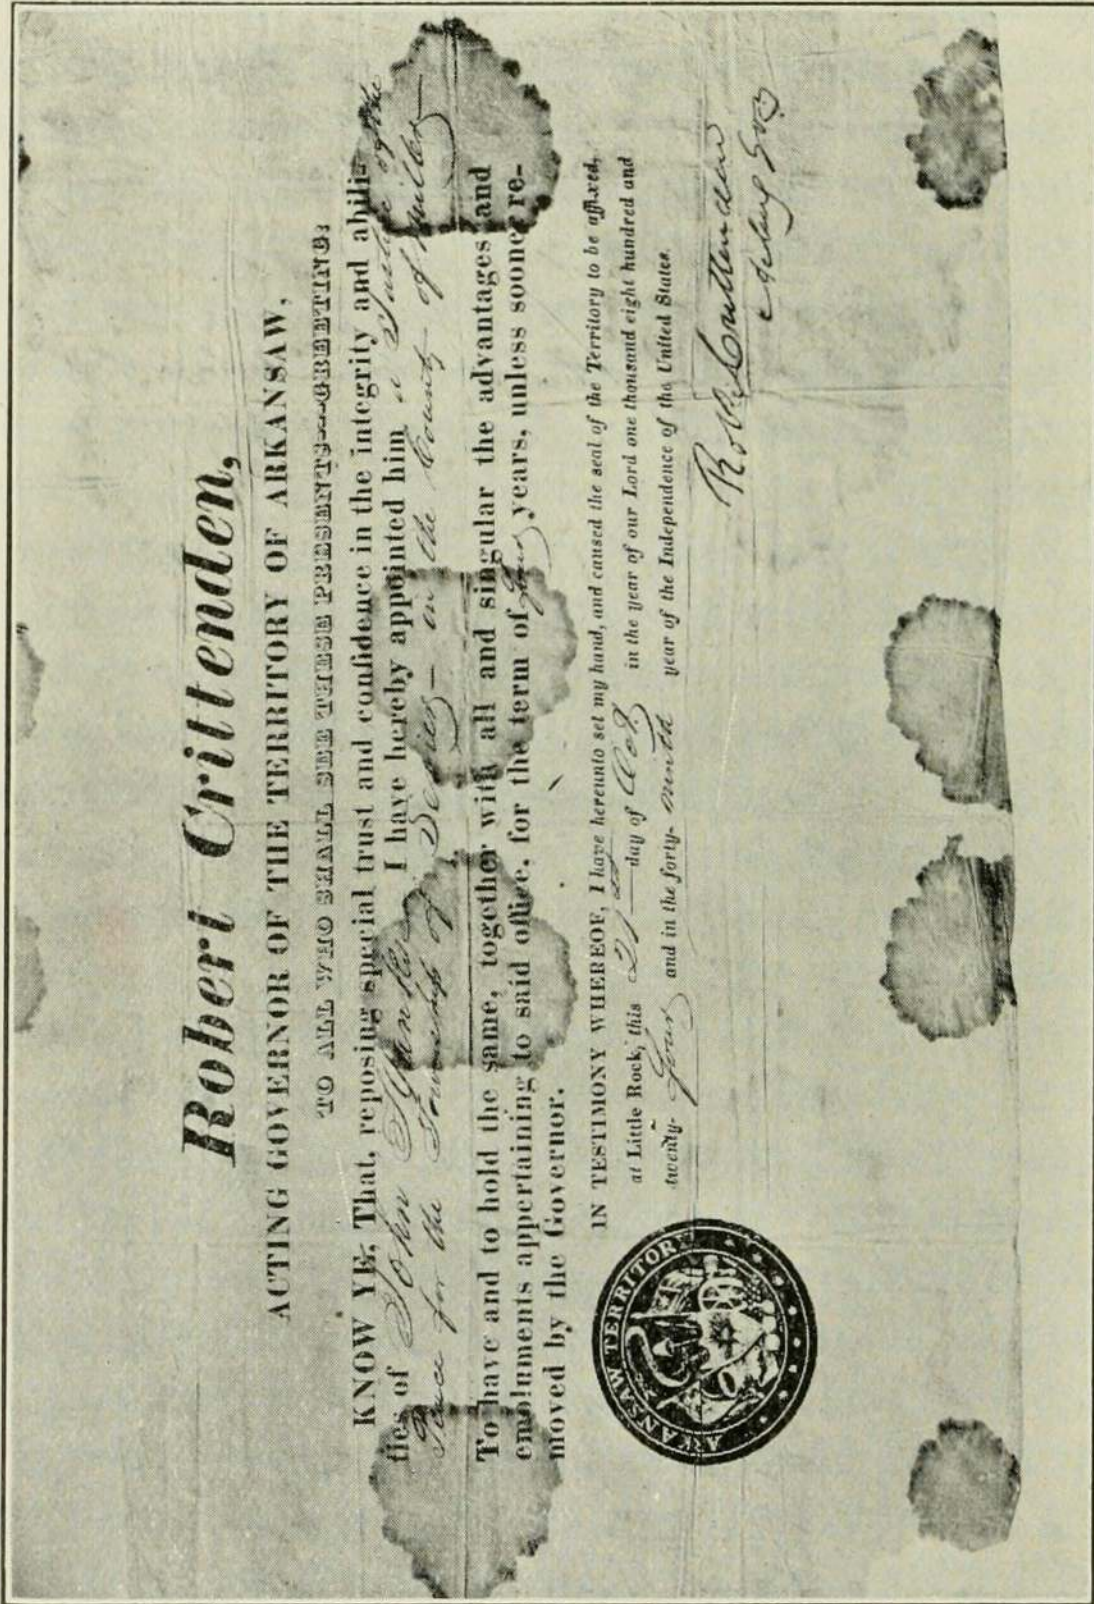 Robert Crittenden,
ACTING GOVERNOR OF THE TERRITORY OF ARKANSAW,
TO ALL WHO SHALL SEE THESE PRESENTS--GREETING:
KNOW YE, That, reposing special trust and confidence in the integrity and abili-
ties of John I have hereby appointed him a Justice of the
Peace for the Township of in the County of Miller
To have and to hold the same, together with all and singular the advantages and
emoluments appertaining to said office, for the term of four years, unless sooner re-
moved by the Governor.
IN TESTIMONY WHEREOF, I have hereunto set my hand, and caused the seal of the Territory to be affixed,
at Little Rock, this 21st day of Oct. in the year of our Lord one thousand eight hundred and
twenty-four and in the forty-ninth year of the Independence of the United States.
ARKANSAW TERRITORY
Robt. Crittenden